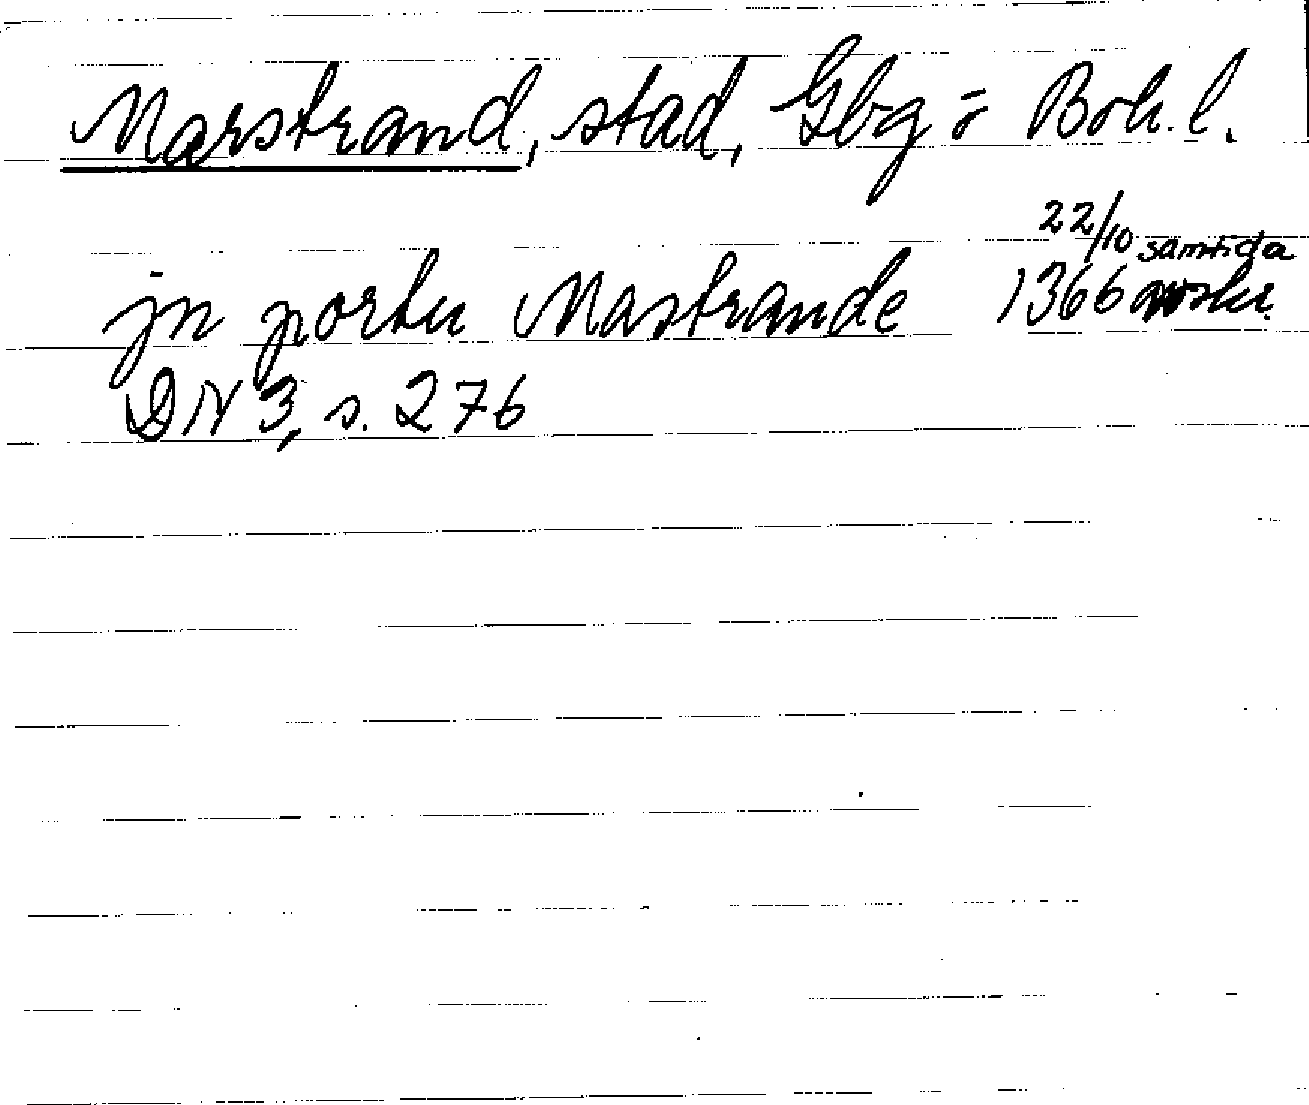 Marstrand, stad, Gbg = Boh. l.
22/10 samtida
jn portu Mastrande 1366 avskr.
DN 3, s. 276